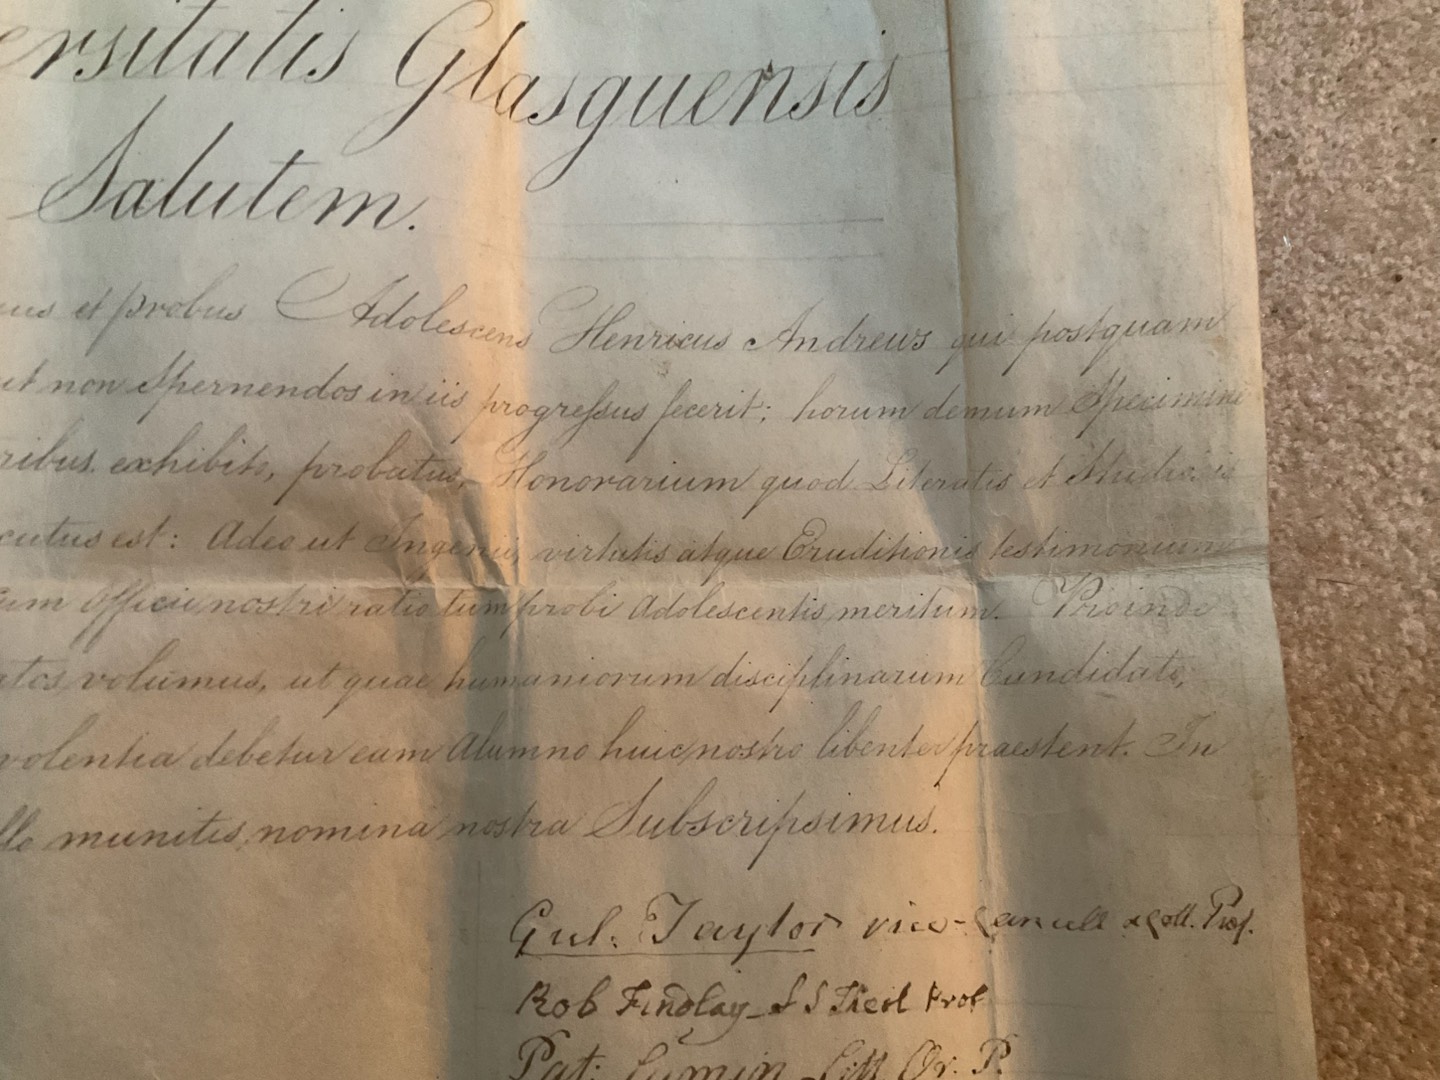 ersitatis Glasguensis
Salutem.
et probus Adolescens Henricus Andrews qui postquam
ut non Spernendos in iis progressus fecerit; horum demum Specimini
ribus exhibito, probatus, Honorarium quod Literatis et Studiosis
cutus est: Adeo ut Ingenii, virtutis atque Eruditionis testimonium
um Officii nostri ratio tum probi Adolescentis meritum. Proinde
volumus, ut quae humaniorum disciplinarum Candidato,
volentia debetur eam Alumno huic nostro libenter praestent. In
munitis, nomina nostra Subscripsimus.
Gul. Taylor vice-Cancell & Coll. Praf.
Rob Findlay S S Theol Prof
Pat: Cumin Litt Or. P.